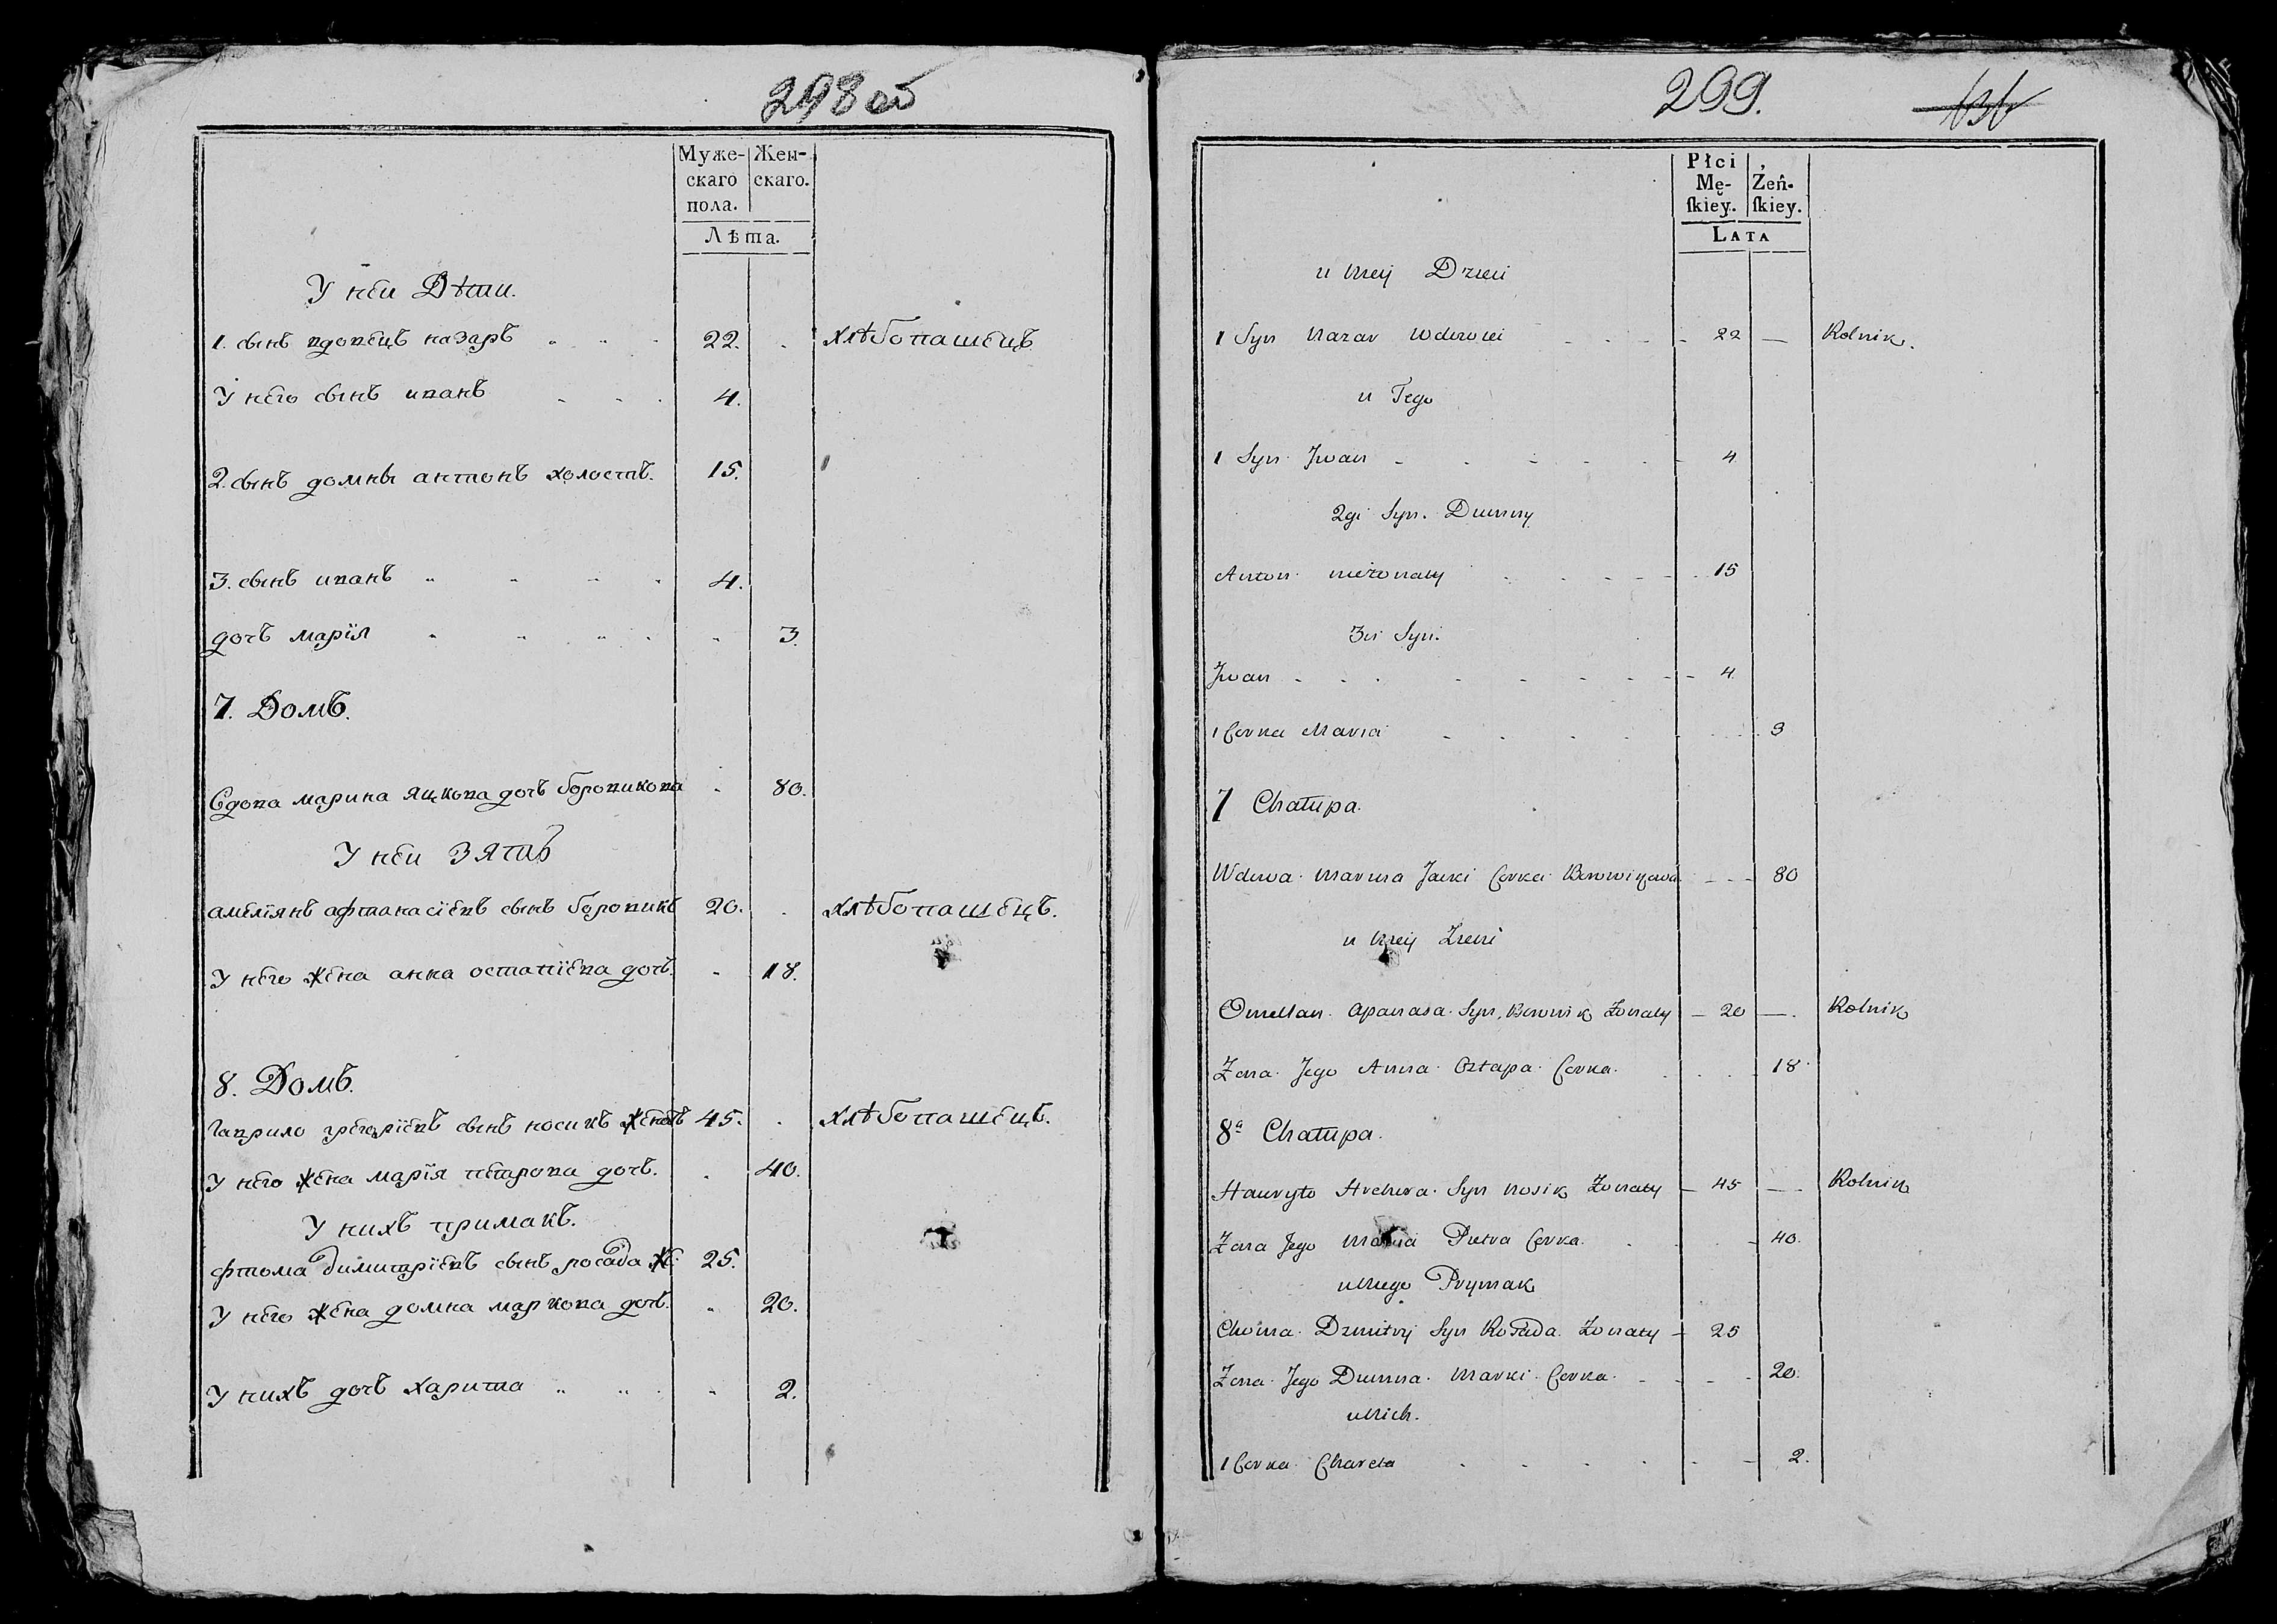 298 об
Муже-
скаго
пола.
Жен-
скаго.
Лѣта.
У неи Дѣти.
1. сынъ вдовецъ назаръ 22. хлѣбопашецъ
У него сынъ иванъ 4.
2. сынъ домны антонъ холостъ. 15.
3. сынъ иванъ 4.
дочь марїя 3.
7. Домъ.
Вдова марина яцкова дочь боровикова 80.
У неи Зять
амелїянъ афтанасїевъ сынъ боровикъ 20. хлѣбопашецъ.
У него жена анна остапїева дочь. 18.
8. Домъ.
Гаврило григорїевъ сынъ носикъ женатъ 45. хлѣбопашецъ.
У него жена марїя петрова дочь. 40.
У нихъ примакъ.
фтома димитрїевъ сынъ росада же: 25.
У него жена домна маркова дочь. 20.
У нихъ дочь харита 2.
299.
Płci
Mę-
ſkiey.
Żeń-
ſkiey.
LATA
u Niey Dzieci
1 Syn Nazar Wdowiec 22 — Rolnik.
u Tego
1 Syn Jwan 4
2gi Syn. Dumny
Anton nieżonaty 15
3ci Syn.
Jwan 4
1 Corka Maria 3
7 Chałupa.
Wdowa Maryna Jacki Corka Borowikowa 80
u Niey Zięć
Omellan Apanasa Syn, Borowik Żonaty 20 — Rolnik
Zona Jego Anna Ostapa Corka. 18
8ª Chałupa.
Hawryło Hrehora Syn Nosik Żonaty 45 — Rolnik
Zona Jego Maria Pietra Corka. 40.
u Niego Prymak
Choma Dzmitry Syn Rosada Żonaty 25
Zona Jego Dumna Marki Corka. 20.
u Nich.
1 Corka Chareta 2.